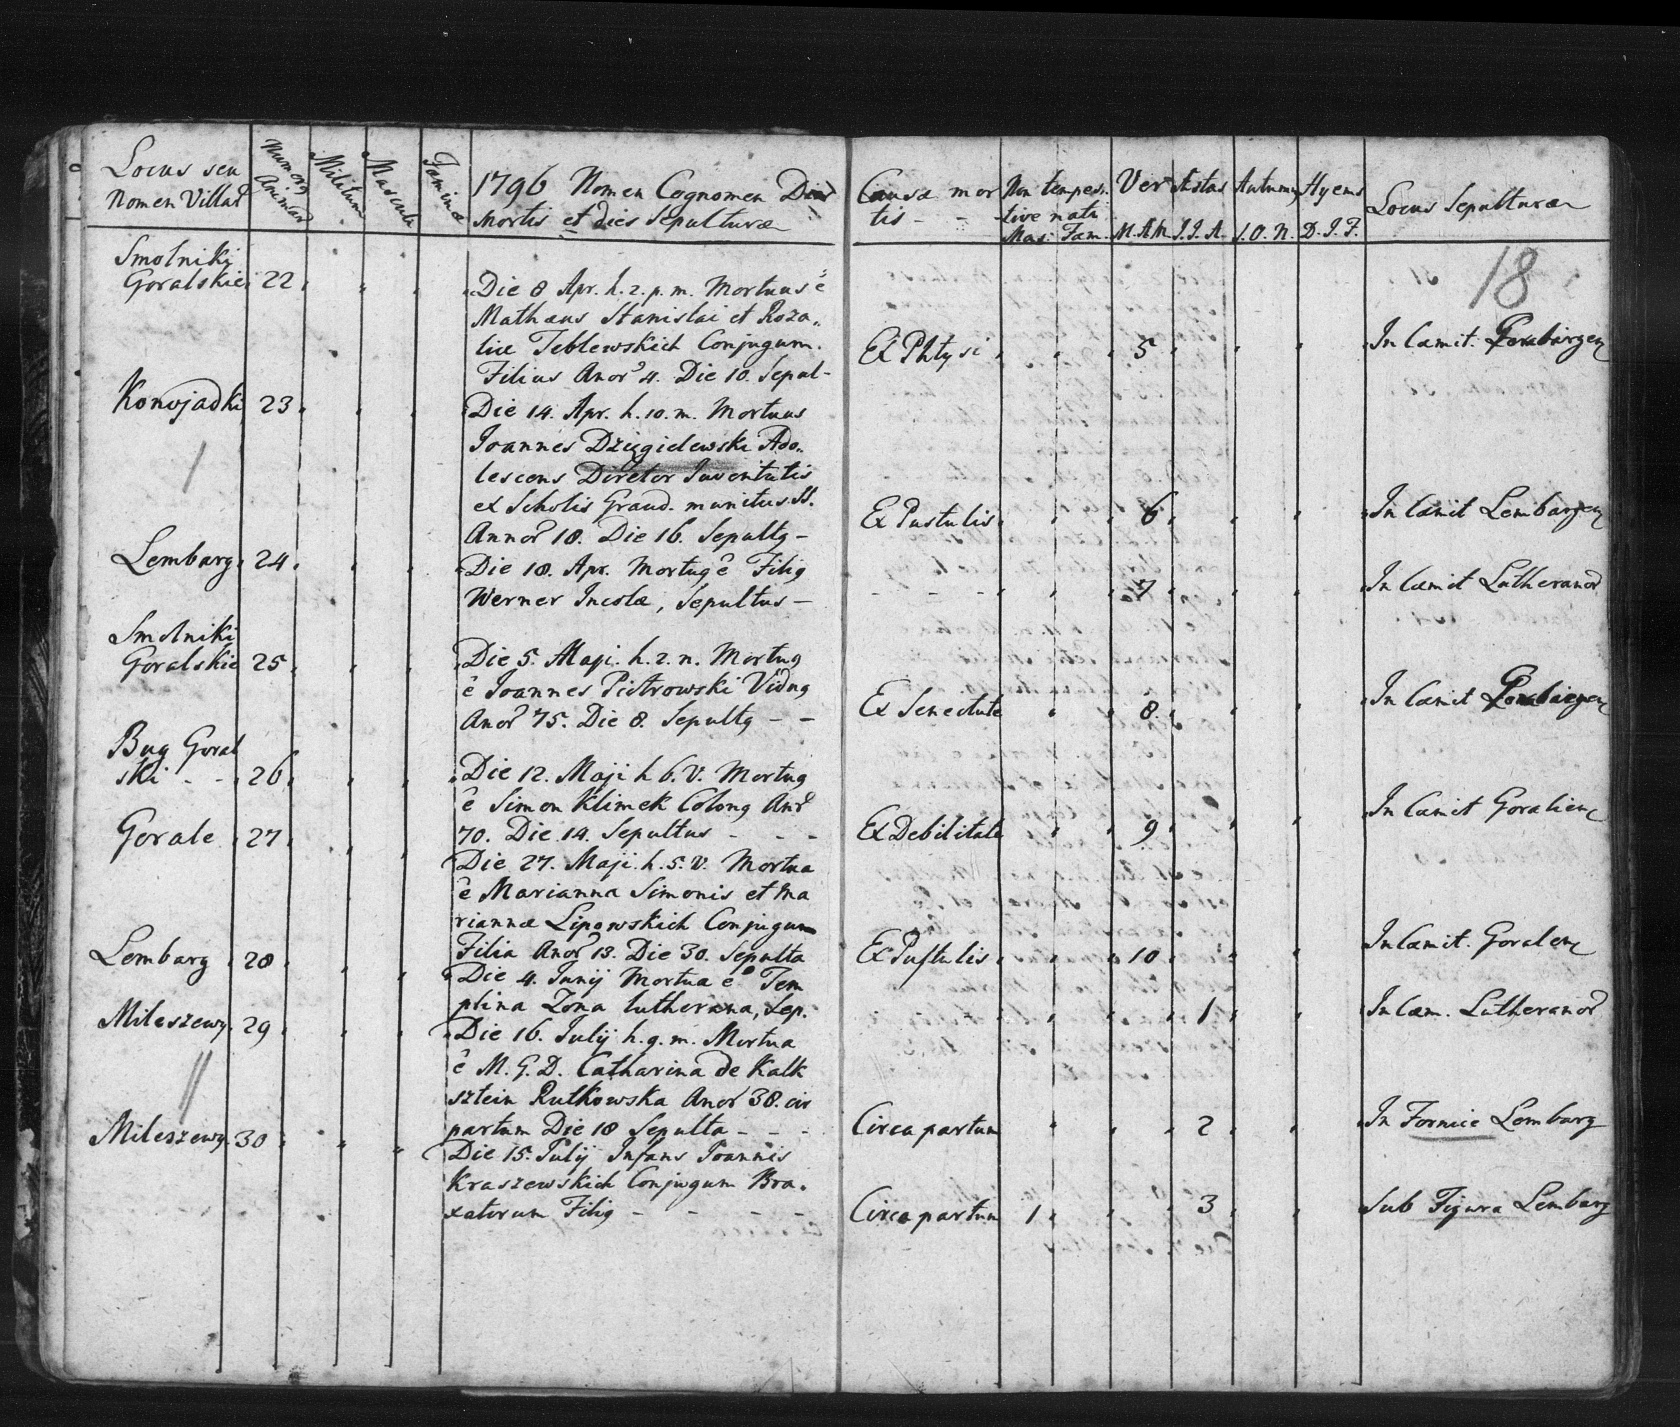 Locus seu
Nomen Villar
Numerg
Animar
Militum
Mascula
Faminæ
1796 Nomen Cognomen Dies
Mortis et dies Sepulturæ
Causa mor
tis - -
Non tempes.
tive nati
Mas. Fam.
Ver
M. A. M.
Æstas
J. J. A.
Autumng
S. O. N.
Hyems
D. J. F.
Locus Sepulturæ
18
Smolniki
Goralskie 22
Die 8 Apr. h. 2. p. m. Mortuus ê
Mathæus Stanislai et Roza„
liæ Teblewskich Conjugum.
Filius Anor 4. Die 10. Sepul-
Ex Phtysi 5 In Cæmit.
Konojadki 23
Die 14. Apr. h. 10. m. Mortuus
Joannes Dzięgielewski Ado„
lescens Diretor Juventutis
ex Scholis Graud. munitus SS.
Annor 18. Die 16. Sepultg -
Ex Pustulis 6 In Cæmit Lembargen
Lembarg 24
Die 18. Apr. Mortug ê Filig
Werner Incolæ, Sepultus -
- - - - 7 In Cæmit Lutheranor
Smolniki
Goralskie 25
Die 5. Maji. h. 2. n. Mortug
ê Joannes Piotrowski Vidug
Anor 75. Die 8. Sepultg - -
Ex Senectute 8 In Cæmit
Bug Goral
ski - - 26
Die 12. Maji h. 6. V. Mortug
ê Simon Klimek Colong Anor
70. Die 14. Sepultus - - -
Ex Debilitate 9 In Cæmit Goralien
Gorale 27
Die 27. Maji. h. 5. V. Mortua
ê Marianna Simonis et Ma
riannæ Lipowskich Conjugum
Filia Anor 13. Die 30. Sepulta
Ex Pustulis 10 In Cæmit. Goralen
Lembarg 28
Die 4. Junij Mortua ê Tem
plina Zona lutherana, Sep.
1 In Cæm. Lutheranor
Mileszewy 29
Die 16. Julij h. 9. m. Mortua
ê M. G. D. Catharina de Kalk
sztein Rutkowska Anor 38. cir
partum Die 18 Sepulta - - -
Circa partum 2 In Fornice Lembarg
Mileszewy 30
Die 15. Julij Infans Joannis
Kraszewskich Conjugum Bra.
xatorum Filig - - - -
Circa partum 1 3 Sub Figura Lembarg